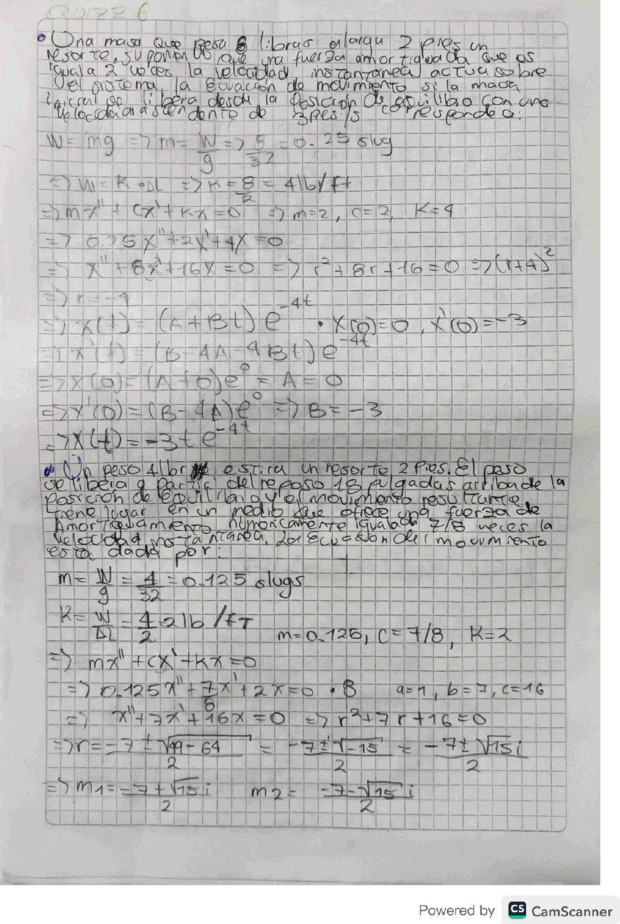 QUIZZ 6
• Una masa que pesa 8 libras alarga 2 pies un
resorte, suponiendo que una fuerza amortiguada que es
igual a 2 veces la velocidad instantanea actua sobre
el sistema, la ecuación de movimiento si la masa
inicial se libera desde la posicion de equilibio con una
velocidad ascendente de 3pies/s corresponde a:
W = mg => m = W/g => 8/32 = 0.25 slug
=> W = K·ΔL => K = 8/2 = 4 lb/ft
=> mx'' + cx' + kx = 0 => m=2, c=2, K=4
=> 0.25x'' + 2x' + 4x = 0
=> x'' + 8x' + 16x = 0 => r² + 8r + 16 = 0 => (r+4)²
=> r = -4
=> x(t) = (A+Bt)e^-4t • x(0)=0, x'(0)=-3
=> x'(t) = (B-4A-4Bt)e^-4t
=> x(0) = (A+0)e^0 = A = 0
=> x'(0) = (B-4A)e^0 => B = -3
=> x(t) = -3te^-4t
• Un peso 4lbr estira un resorte 2 Pies. El peso
se libera a partir del reposo 18 pulgadas arriba de la
posición de equilibrio y el movimiento resultante
tiene lugar en un medio que ofrece una fuerza de
Amortiguamiento numericamente igual a 7/8 veces la
velocidad instantanea. La ecuacion del movimiento
esta dada por:
m = W/g = 4/32 = 0.125 slugs
K = W/ΔL = 4/2 2lb/ft m=0.125, c=7/8, K=2
=> mx'' + cx' + kx = 0
=> 0.125x'' + 7/8x' + 2x = 0 • 8 a=1, b=7, c=16
=> x'' + 7x' + 16x = 0 => r² + 7r + 16 = 0
=> r = -7 ± √49-64 / 2 = -7 ± √-15 / 2 = -7 ± √15i / 2
=> m1 = -7+√15i / 2 m2 = -7-√15i / 2
Powered by CS CamScanner